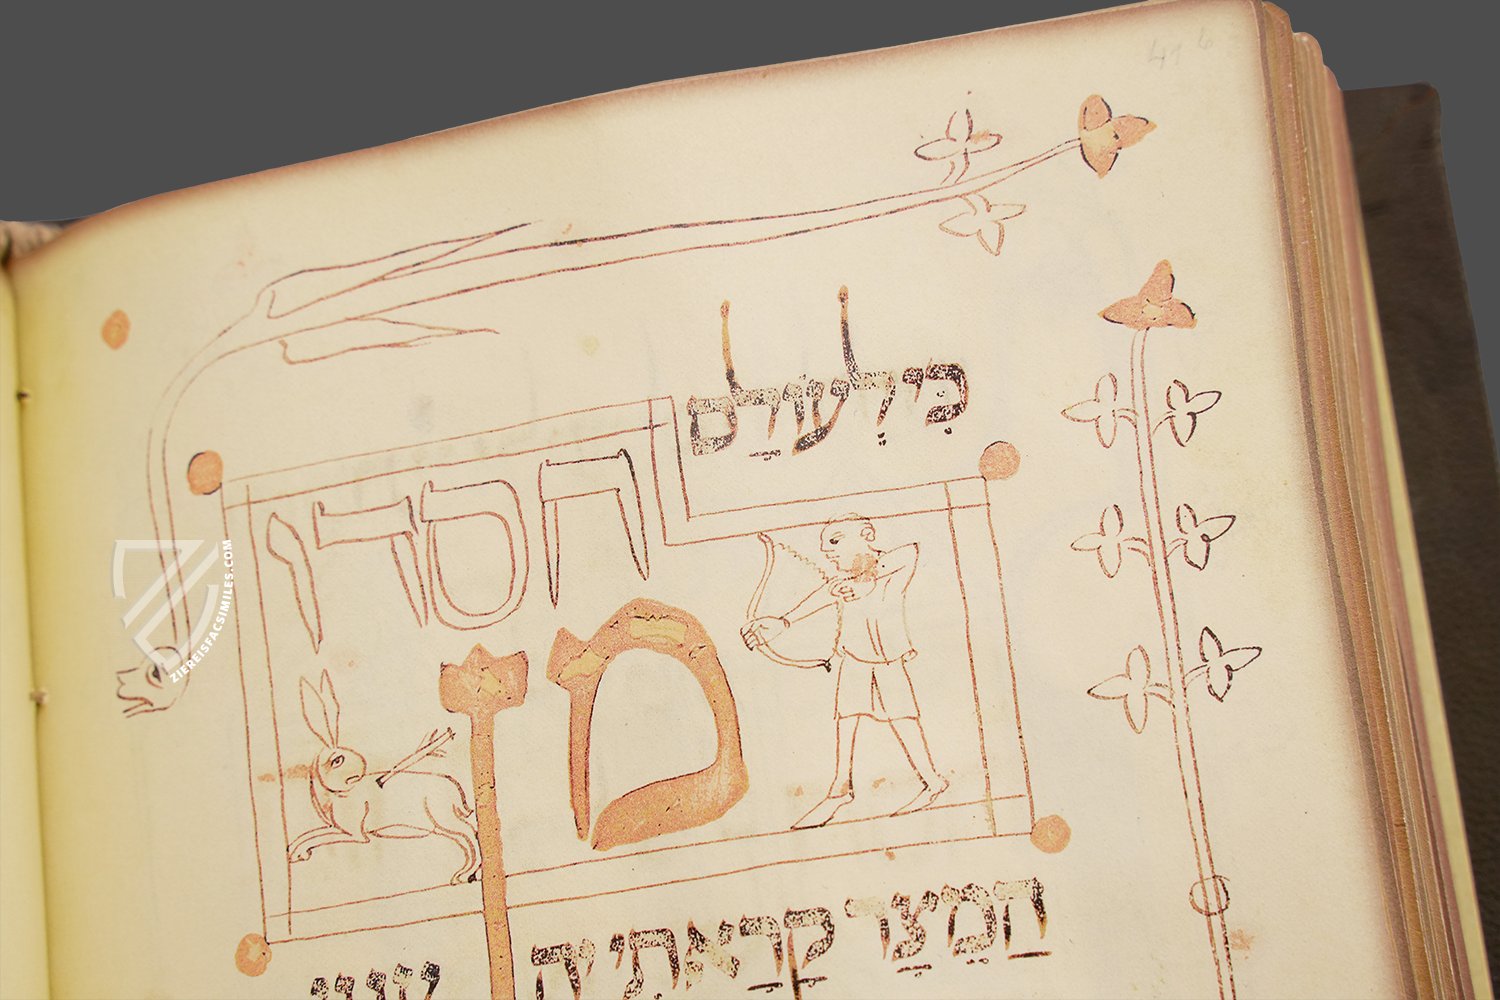 41 b
כִּי לְעוֹלָם
חסדו
מן
הַמֵצַר קָרָאתִי יָהּ
ZIEREISFACSIMILES.COM